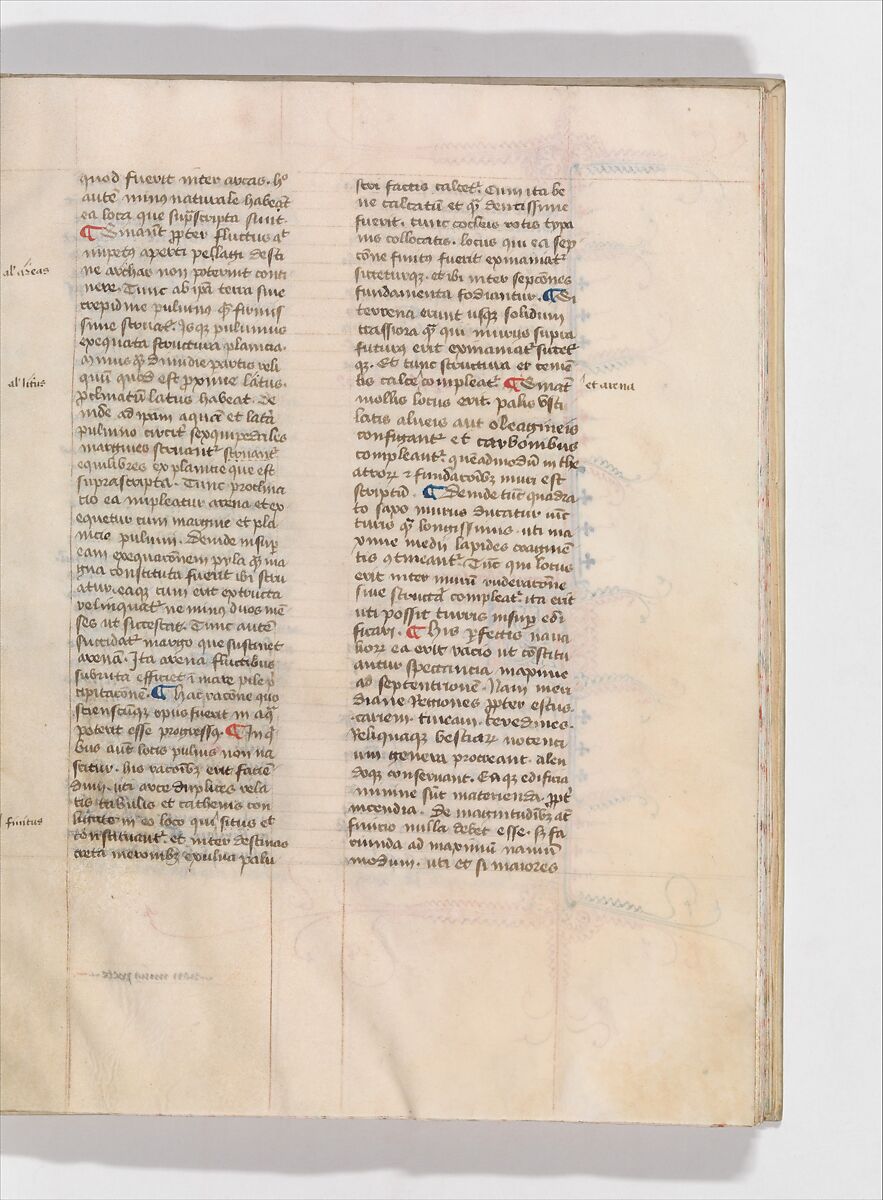 quod fuerit inter arcas. hº
autē minus naturale habeāt
ea loca que sup̄scripta sunt.
¶ Sinaut̄ ꝓpter fluctus aut̄
impetꝰ aperti pellagi desti
ne archas non poterint conti
nere. Tunc ab ipā terra siue
crepidine puluinꝰ q̄ firmis
sime struat͛. Isq; puluinus
exequata structura planicia.
minus q̄ dimidie partis reli
quū quod est ꝓxime latus.
ꝓclinatū latus habeat. De
inde ad ipam aquā et laterā
puluino circit͛ sexquipedales
margines struant͛ struant͛
equilibres ex planicie que est
suprascripta. Tunc proclina
cio ea impleatur arena et ex
equetur cum margine et pla
nicio puluini. Deinde insuꝑ
eam exequacōnem pyla q̄ ma
gna constituta fuerit ibi stru
atur. eaq; cum erit extructa
relinquat͛ ne minꝰ duos mē
ses ut siccescat. Tunc autē
succidat͛ margo que sustinet
arenā. Ita arena fluctibus
subruta efficiet ī mare pile p̄
cipitacōnē. ¶ Hac racōne quo
ciensciūq; opus fuerit in aqᷓ
poterit esse progressꝰ. ¶ In qⁱ
bus aut̄ locis puluis non na
scitur. his racōibꝫ erit facien̄
dum. uti arce duplices rela
tis tabulis et cathenis con
ligate in eo loco qui situs e͛t
constituant͛. et inter destinas
creta meronibꝫ ex ulua palu
stri factis calcet͛. Cum ita be
ne calcatū et q̄ densissime
fuerit. tunc cocleis rotis typa
nis collocatis. locus qui ea sep
cōne finitꝰ fuerit exinaniat͛
siceturq;. et ibi inter sepcōnes
fundamenta fodiantur. ¶ Si
terrena erunt usq; solidum
crassiora q̄ qui murus supra
futurꝰ erit exinaniat͛ sicet͛
q;. Et tunc structura et cemē
tis calce compleat͛ ¶ Sinaut̄
mollis locus erit. palis vsti
latis alneis aut oleagineis
configant͛ et carbonibus
compleant͛ quēadmodū in the
atroꝝ ⁊ fundacōibꝫ muri est
scriptū. ¶ Deinde tūc quadra
to saxo murus ducatur iūc
turis q̄ longissimis. uti ma
xime medii lapides coagmē
tis ꝯtineant͛. Tūc qui locus
erit inter murū ruderacōne
siue structᷓ compleat͛. ita erit
uti possit turris insuꝑ edi
ficari. ¶ His ꝑfectis naua
lioꝝ ea erit racio ut cōstitu
antur spectancia maxime
ad septentrionē. Nam meri
diane Regiones ꝓpter estus.
cariem. tineam. teredines.
Reliquaq; bestiaꝝ nocenci
um genera procreant. alen
doq; conseruant. Eaq; edificia
minime sūt materienda. ꝓpt͛
incendia. De magnitudibꝫ aut̄
finicio nulla debet esse. s; fa
ciunda ad maximū nauiū
modum. uti et si maiores
al' arceas
al' litus
finitus
et arena